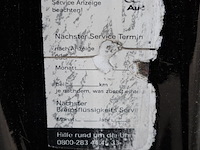 Service Anzeige
beachten!
Nächster Service Termin
nach Anzeige
Monat
km
je nachdem, was zuerst
Nächster
Bremsflüssigkeits Servi
Monat
Hilfe rund um die Uhr
0800-283